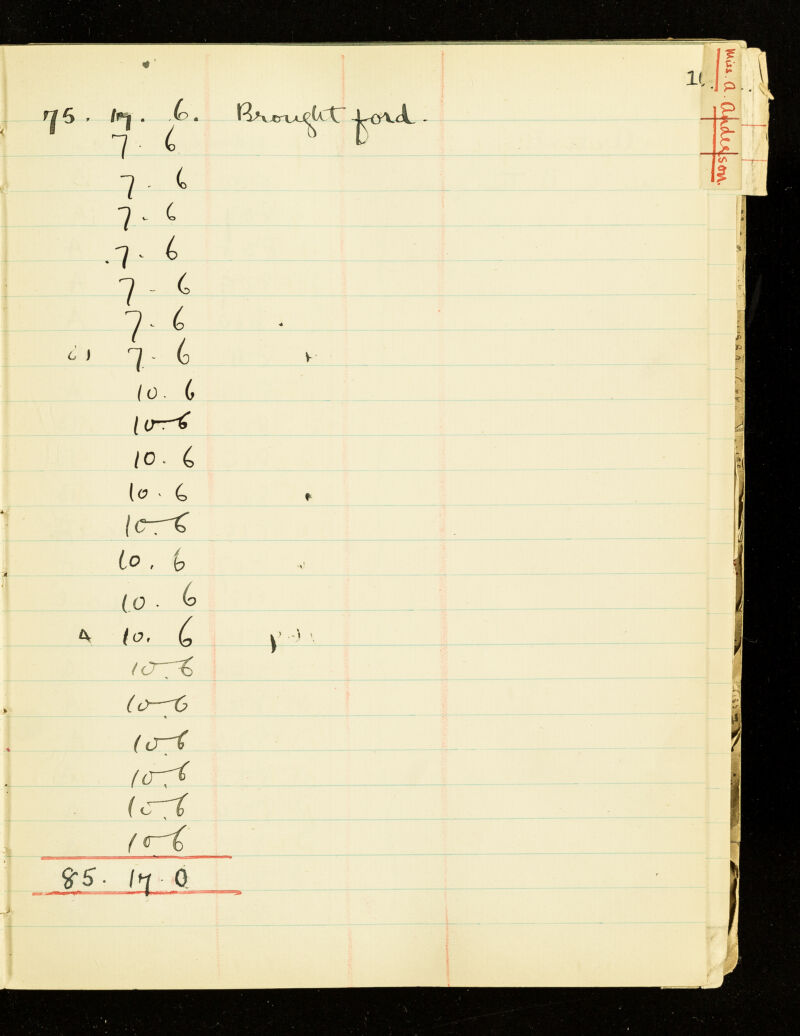 75. 17. 6. Brought ford.
7. 6
7. 6
7. 6
.7. 6
7 - 6
7. 6
7. 6
10. 6
10.6
10. 6
10. 6
10.6
10. 6
10. 6
10. 6
10.6
10.6
10.6
10.6
10.6
10 6
85. 17. 0
Miss. A. Anderson.